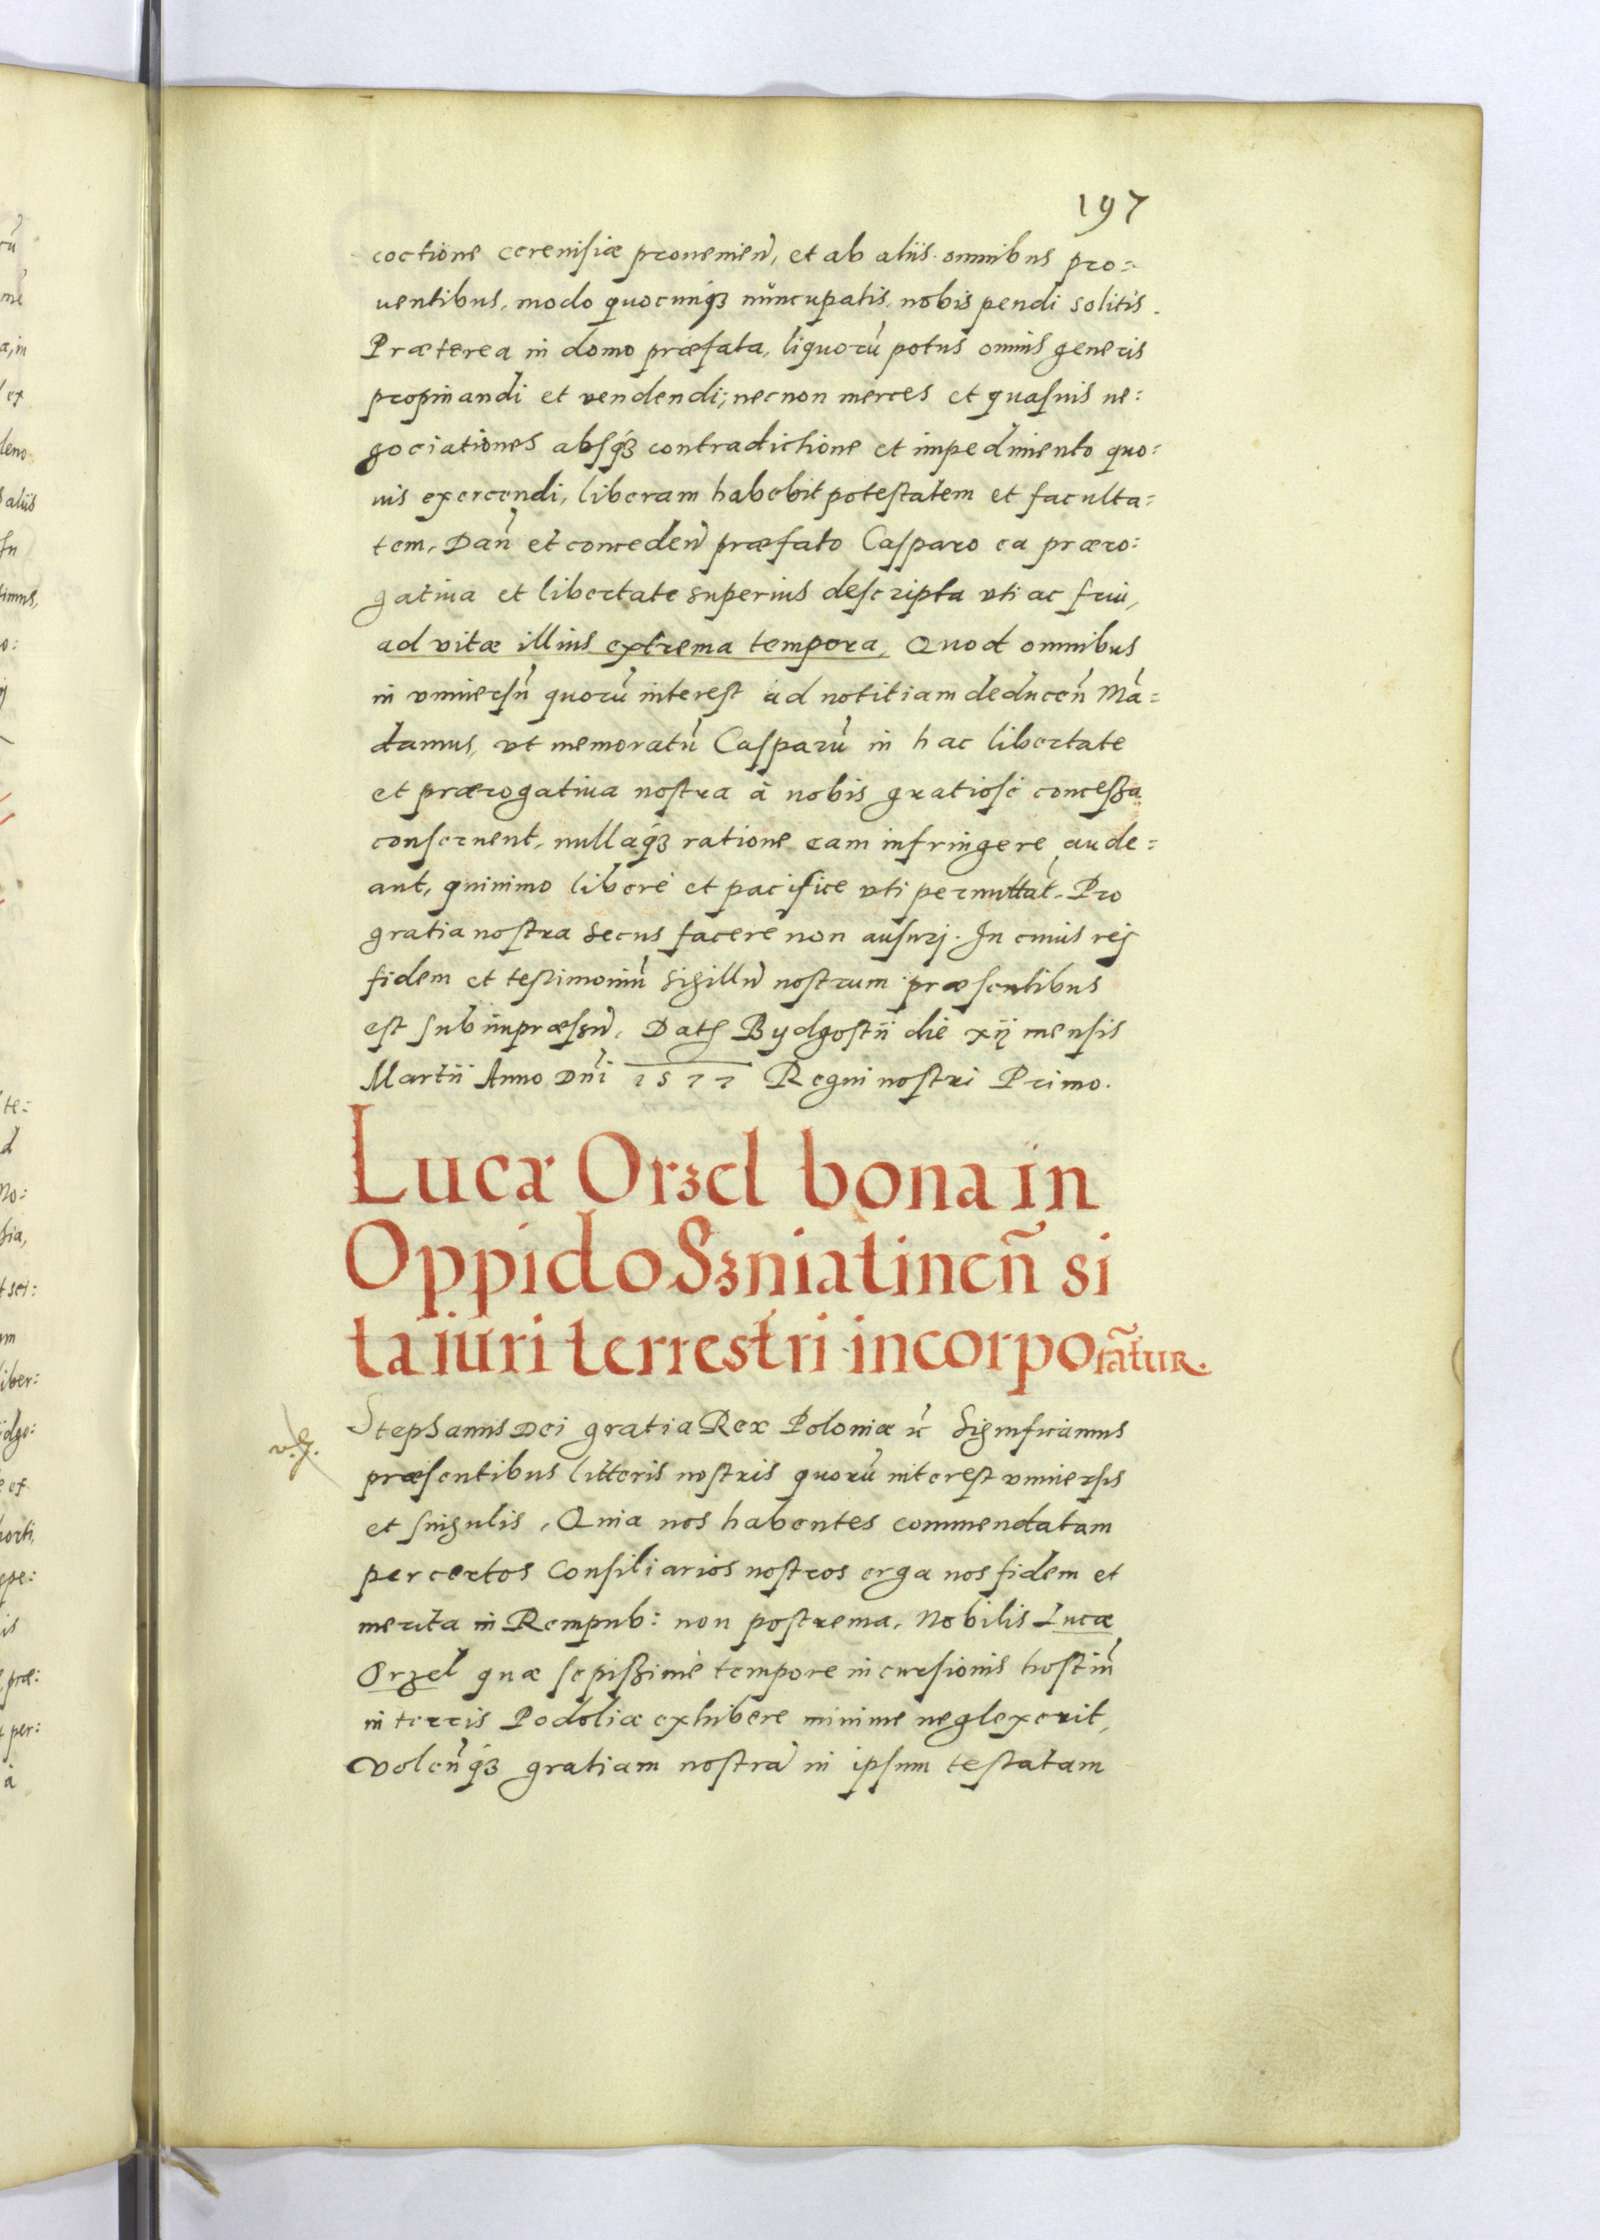 197
coctione cereuisiæ prouenien̄, et ab aliis omnibus pro:
uentibus, modo quocunqȝ nuncupatis, nobis pendi solitis.
Præterea in domo præfata, liquorū potus omnis generis
propinandi et vendendi; necnon merces et quasuis ne:
gociationes absqȝ contradictione et impedimento quo:
uis exercendi, liberam habebit potestatem et faculta:
tem, Dan̄ et conceden̄ præfato Casparo ea præro:
gatiua et libertate superius descripta vti ac frui,
ad vitæ illius extrema tempora, Quod omnibus
in vniuersū quorū interest ad notitiam deducen̄ Mā:
damus, vt memoratū Casparū in hac libertate
et prærogatiua nostra à nobis gratiosè concessa
conseruent, nullaqȝ ratione eam infringere aude:
ant, quinimo liberè et pacifice vti permittāt. Pro
gratia nostra secus facere non ausurj. In cuius rej
fidem et testimoniū sigillū nostrum præsentibus
est subimpræssū. Datȝ Bydgostii die xij mensis
Martii Anno Dn̄i 1577 Regni nostri Primo.
Lucæ Orzel bona in
Oppido Szniatinen̄ si
ta iuri terrestri incorporātur.
Stephanus Dei gratia Rex Poloniæ &c̄ Significamus
præsentibus litteris nostris quorū interest vniuersis
et singulis, Quia nos habentes commendatam
per certos Consiliarios nostros erga nos fidem et
merita in Rempub: non postrema, Nobilis Lucæ
Orzel quæ sepissimè tempore incursionis hostiū
in terris Podoliæ exhibere minime neglexerit,
Volen̄qȝ gratiam nostrā in ipsum testatam